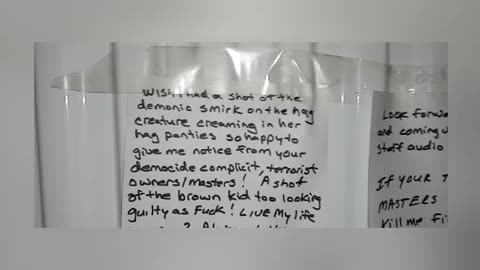 Wish I had a shot of the
demonic smirk on the hag
creature creaming in her
hag panties so happy to
give me notice from your
democide complicit, terrorist
owners/masters! A shot
of the brown kid too looking
guilty as Fuck! Live My life
Look forwa
and coming u
staff audio
IF YOUR T
MASTERS
Kill me Fi